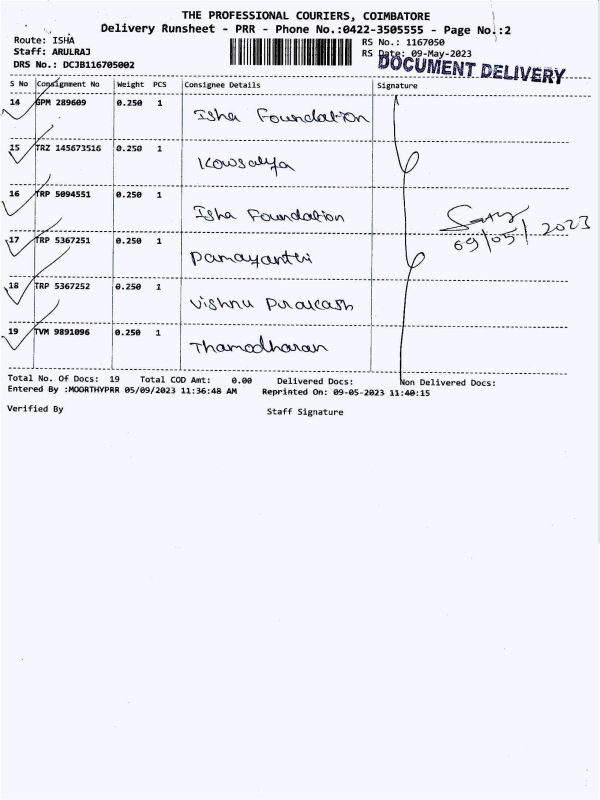 THE PROFESSIONAL COURIERS, COIMBATORE
Delivery Runsheet - PRR - Phone No.:0422-3505555 - Page No.:2
Route: ISHA
RS No.: 1167050
Staff: ARULRAJ
RS Date: 09-May-2023
DRS No.: DCJB116705002
DOCUMENT DELIVERY
S No Consignment No Weight PCS Consignee Details Signature
14 GPM 289609 0.250 1 Isha Foundation
15 TRZ 145673516 0.250 1 Kowsalya
16 TRP 5094551 0.250 1 Isha Foundation
17 TRP 5367251 0.250 1 Damayanthi
09/05/2023
18 TRP 5367252 0.250 1 Vishnu Prakash
19 TVM 9891096 0.250 1 Thamodharan
Total No. Of Docs: 19 Total COD Amt: 0.00 Delivered Docs: Non Delivered Docs:
Entered By :MOORTHYPRR 05/09/2023 11:36:48 AM Reprinted On: 09-05-2023 11:40:15
Verified By Staff Signature